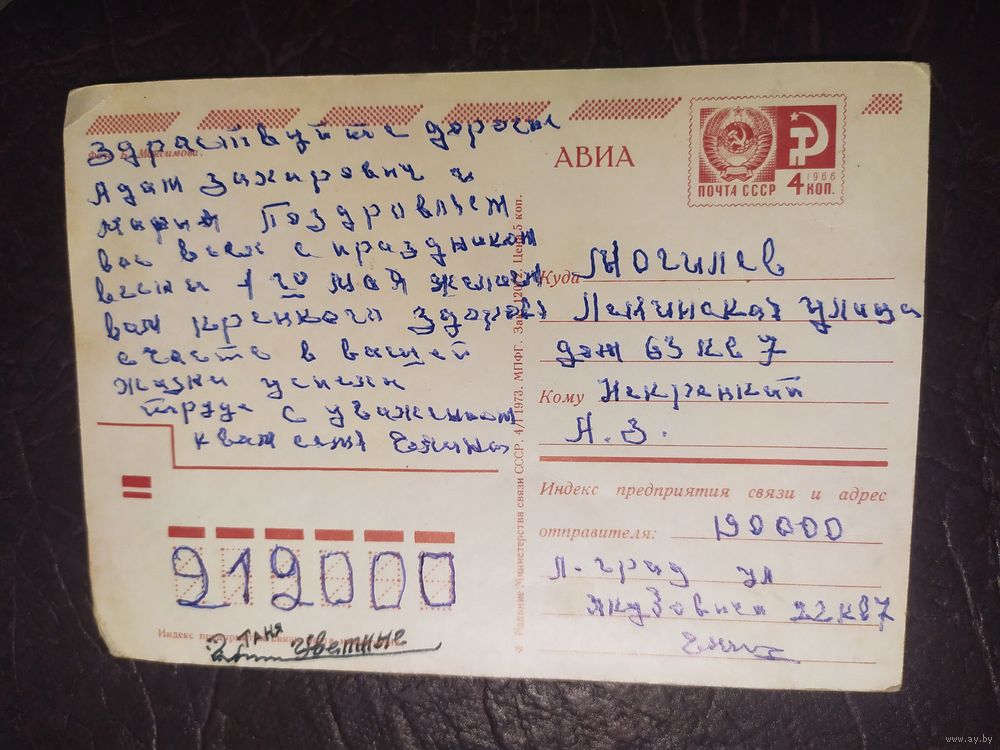 Здраствуйте дорогие
Адам Захирович и
Мария Поздровляем
вас всех с праздником
весны 1 го мая желаем
вам крепкого здоровя
счастя в вашей
жизни успехи
труде с уважением
к вам семя
АВИА
1966
ПОЧТА СССР 4 КОП.
Куда Могилев
Ленинская улица
дом 63 кв 7
Кому Некренкий
А. З.
Индекс предприятия связи и адрес
отправителя: 190000
Л-град ул
Якубовича 22 кв 7
212000
Индекс предприятия связи
Таня
цветные
Издание Министерства связи СССР. 4/I 1973. МПФГ. Зак. Цена 5 коп.
www.ay.by